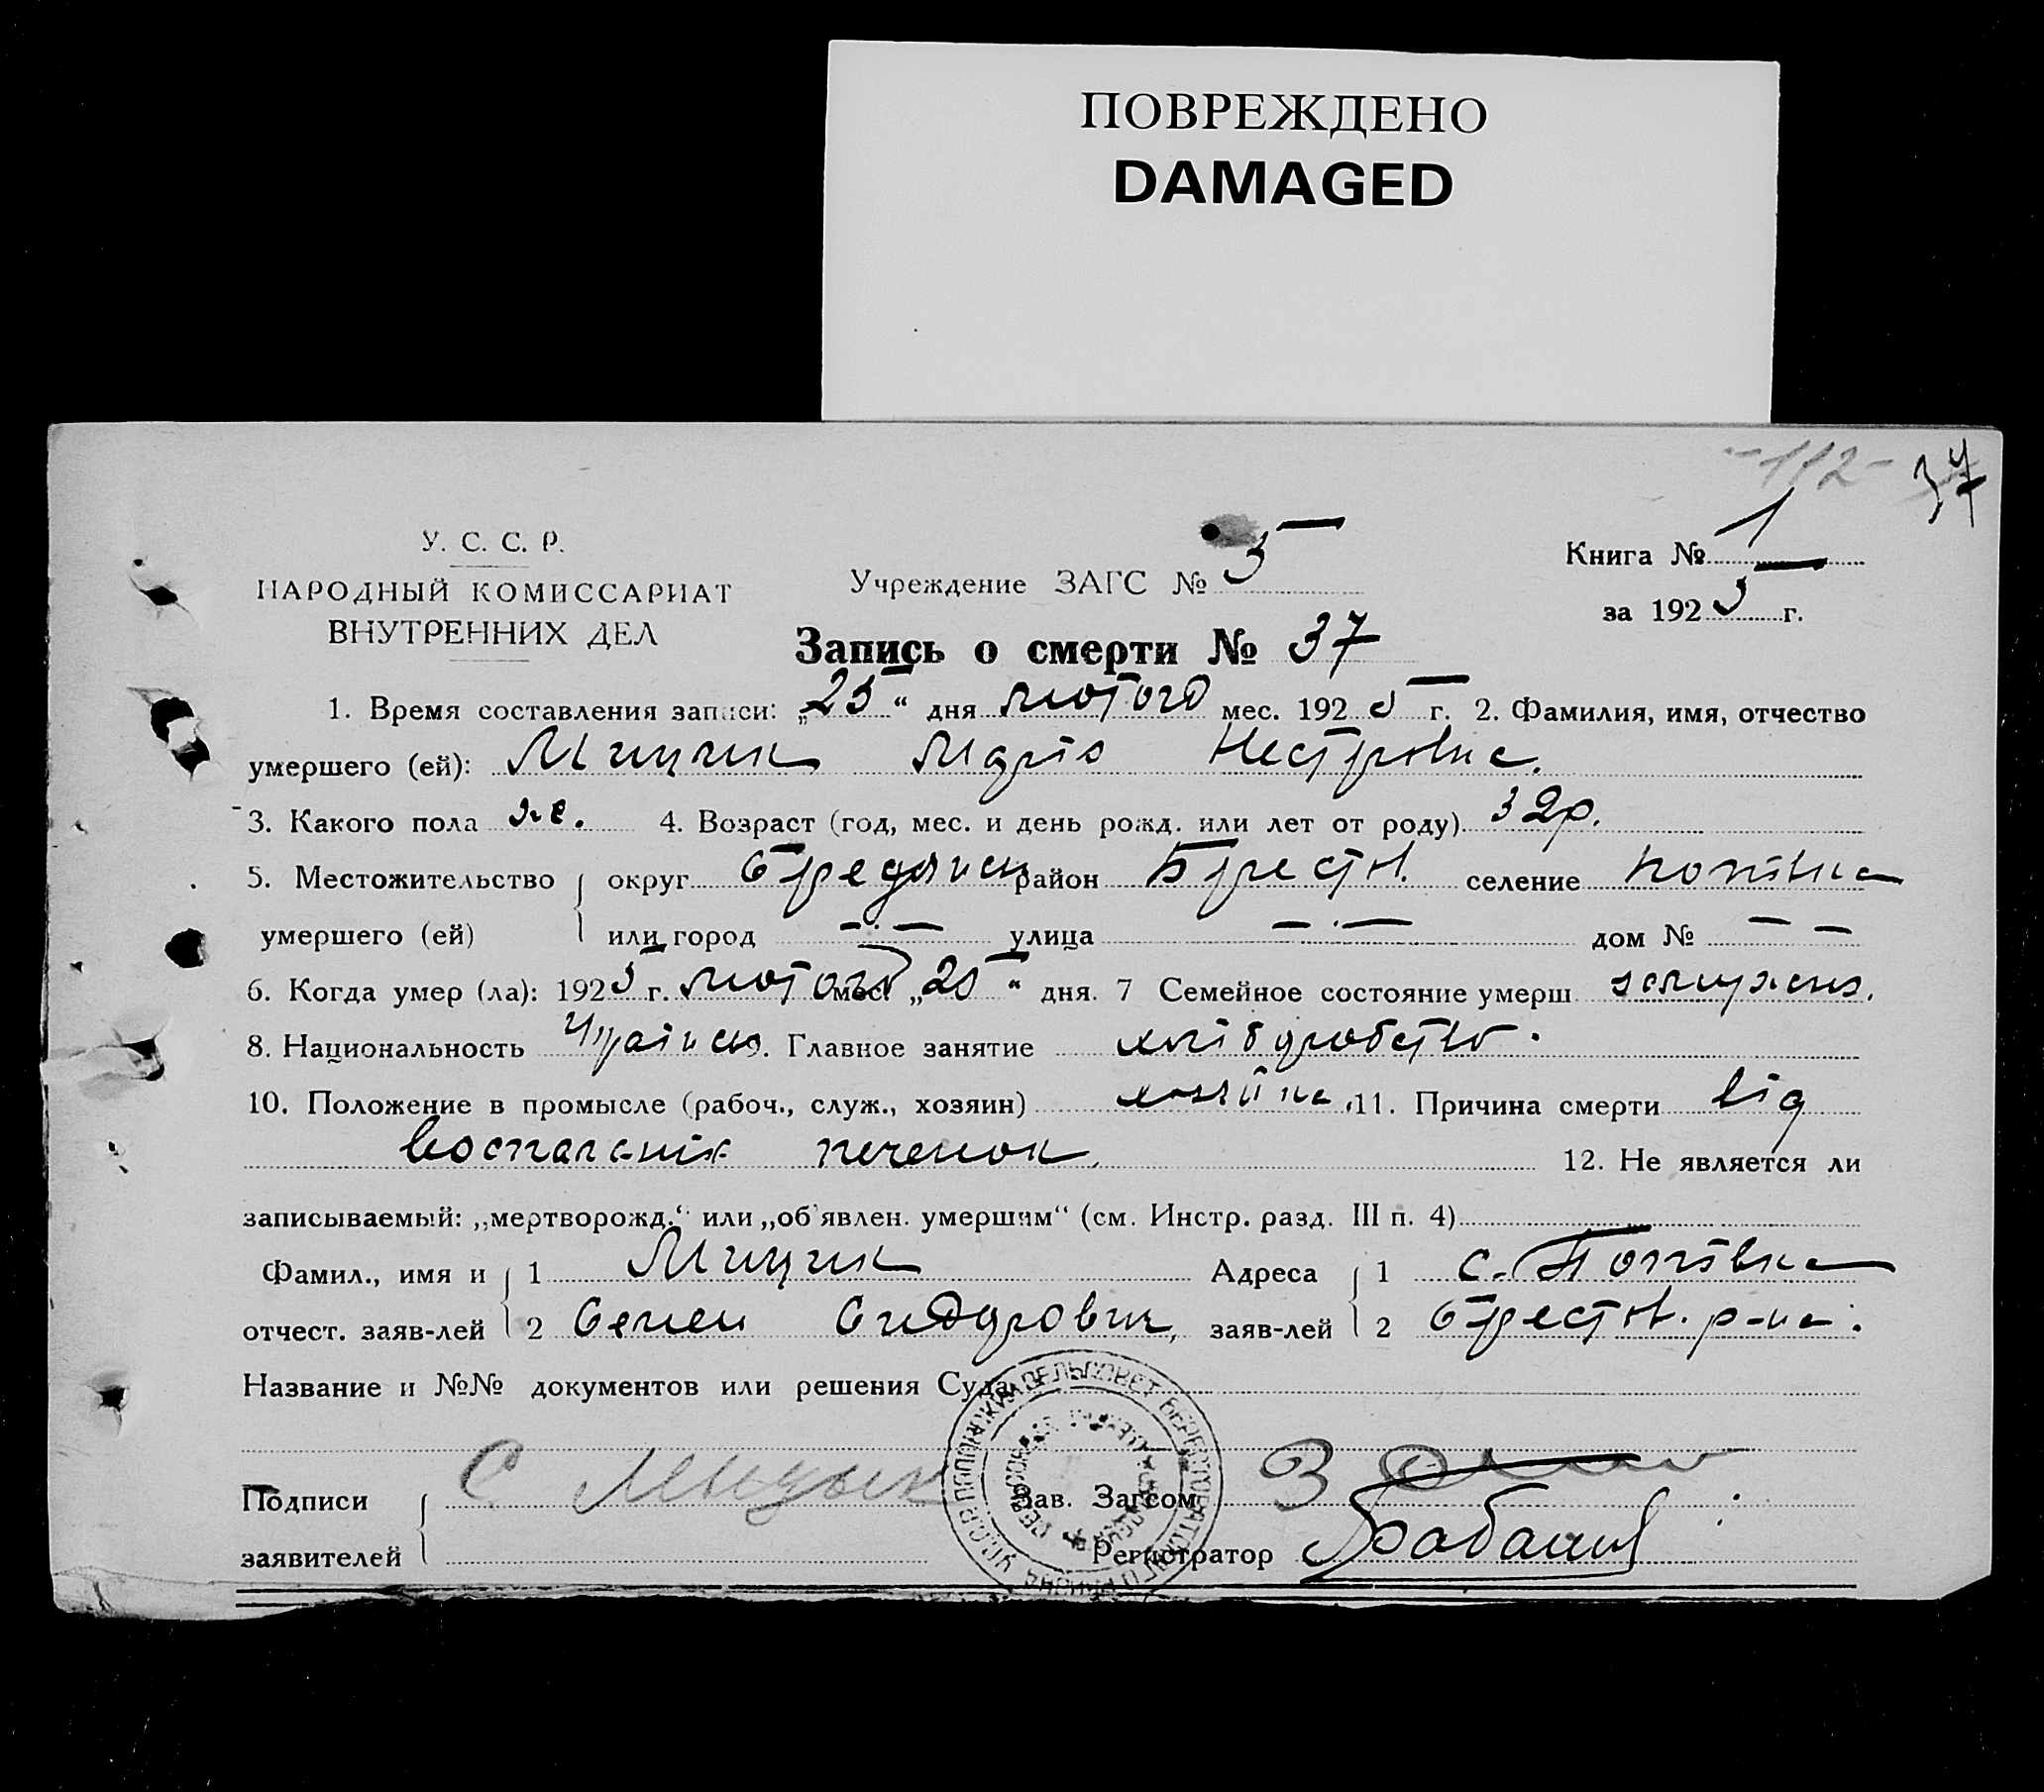 ПОВРЕЖДЕНО
DAMAGED
-112- 37
У. С. С. Р.
НАРОДНЫЙ КОМИССАРИАТ
ВНУТРЕННИХ ДЕЛ
Учреждение ЗАГС № 5
Книга № 1
за 1925 г.
Запись о смерти № 37
1. Время составления записи: „25“ дня лютого мес. 1925 г. 2. Фамилия, имя, отчество
умершего (ей): Мицик Марія Нестровна.
3. Какого пола же. 4. Возраст (год, мес. и день рожд. или лет от роду) 32р.
5. Местожительство округ район Брестів. селение Попівка
умершего (ей) или город — · — улица — · — дом № — —
6. Когда умер (ла): 1925 г. лютого мес. „25“ дня. 7 Семейное состояние умерш. замужня.
8. Национальность Україн 9. Главное занятие хлібаробство.
10. Положение в промысле (рабоч., служ., хозяин) хазяйка. 11. Причина смерти від
воспаленія печенок. 12. Не является ли
записываемый: „мертворожд.“ или „об'явлен. умершим“ (см. Инстр. разд. III п. 4)
Фамил., имя и 1 Мицик Адреса 1 с. Попівка
отчест. заяв-лей 2 Семен Сидорович, заяв-лей 2 Брестів. р-на.
Название и №№ документов или решения Суда
Подписи С Мицик Зав. Загсом
заявителей Регистратор